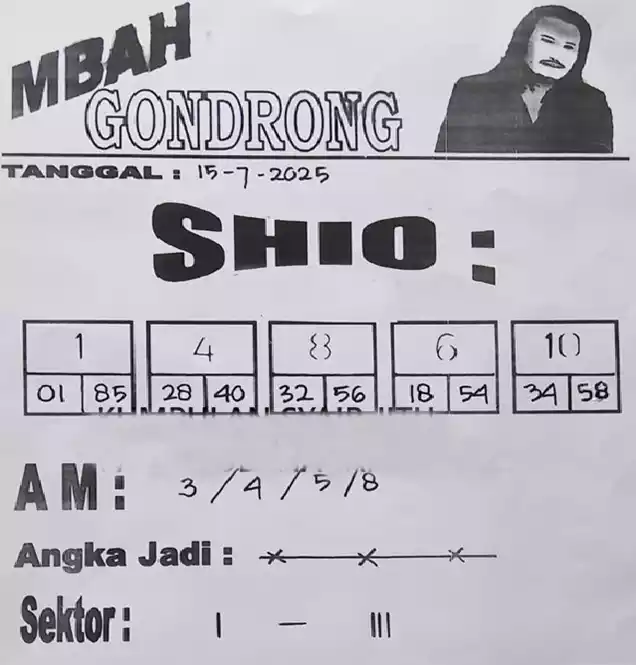 MBAH
GONDRONG
TANGGAL : 15-7-2025
SHIO :
1 4 8 6 10
01 85 28 40 32 56 18 54 34 58
AM : 3 / 4 / 5 / 8
Angka Jadi : x x x
Sektor : I — III